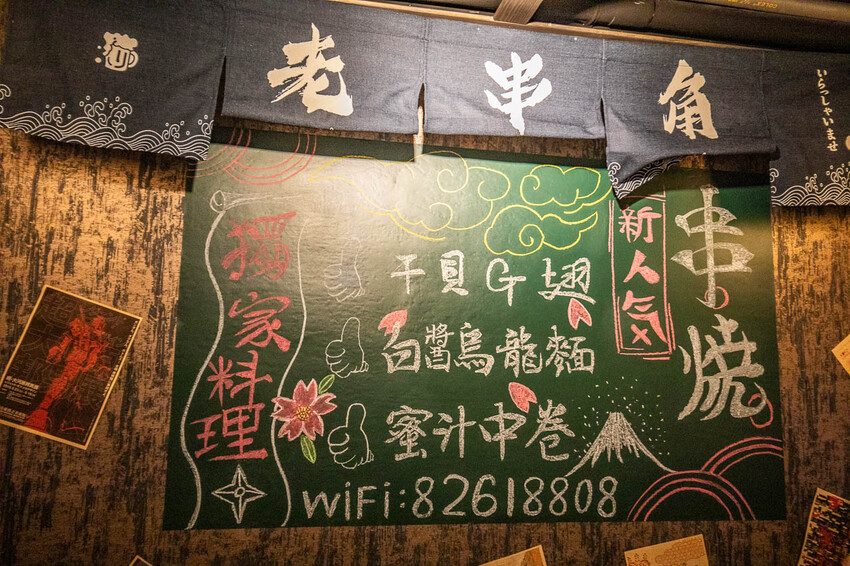 老串角
いらっしゃいませ
串燒
新人気
獨家料理
干貝G翅
白醬烏龍麵
蜜汁中卷
WiFi:82618808